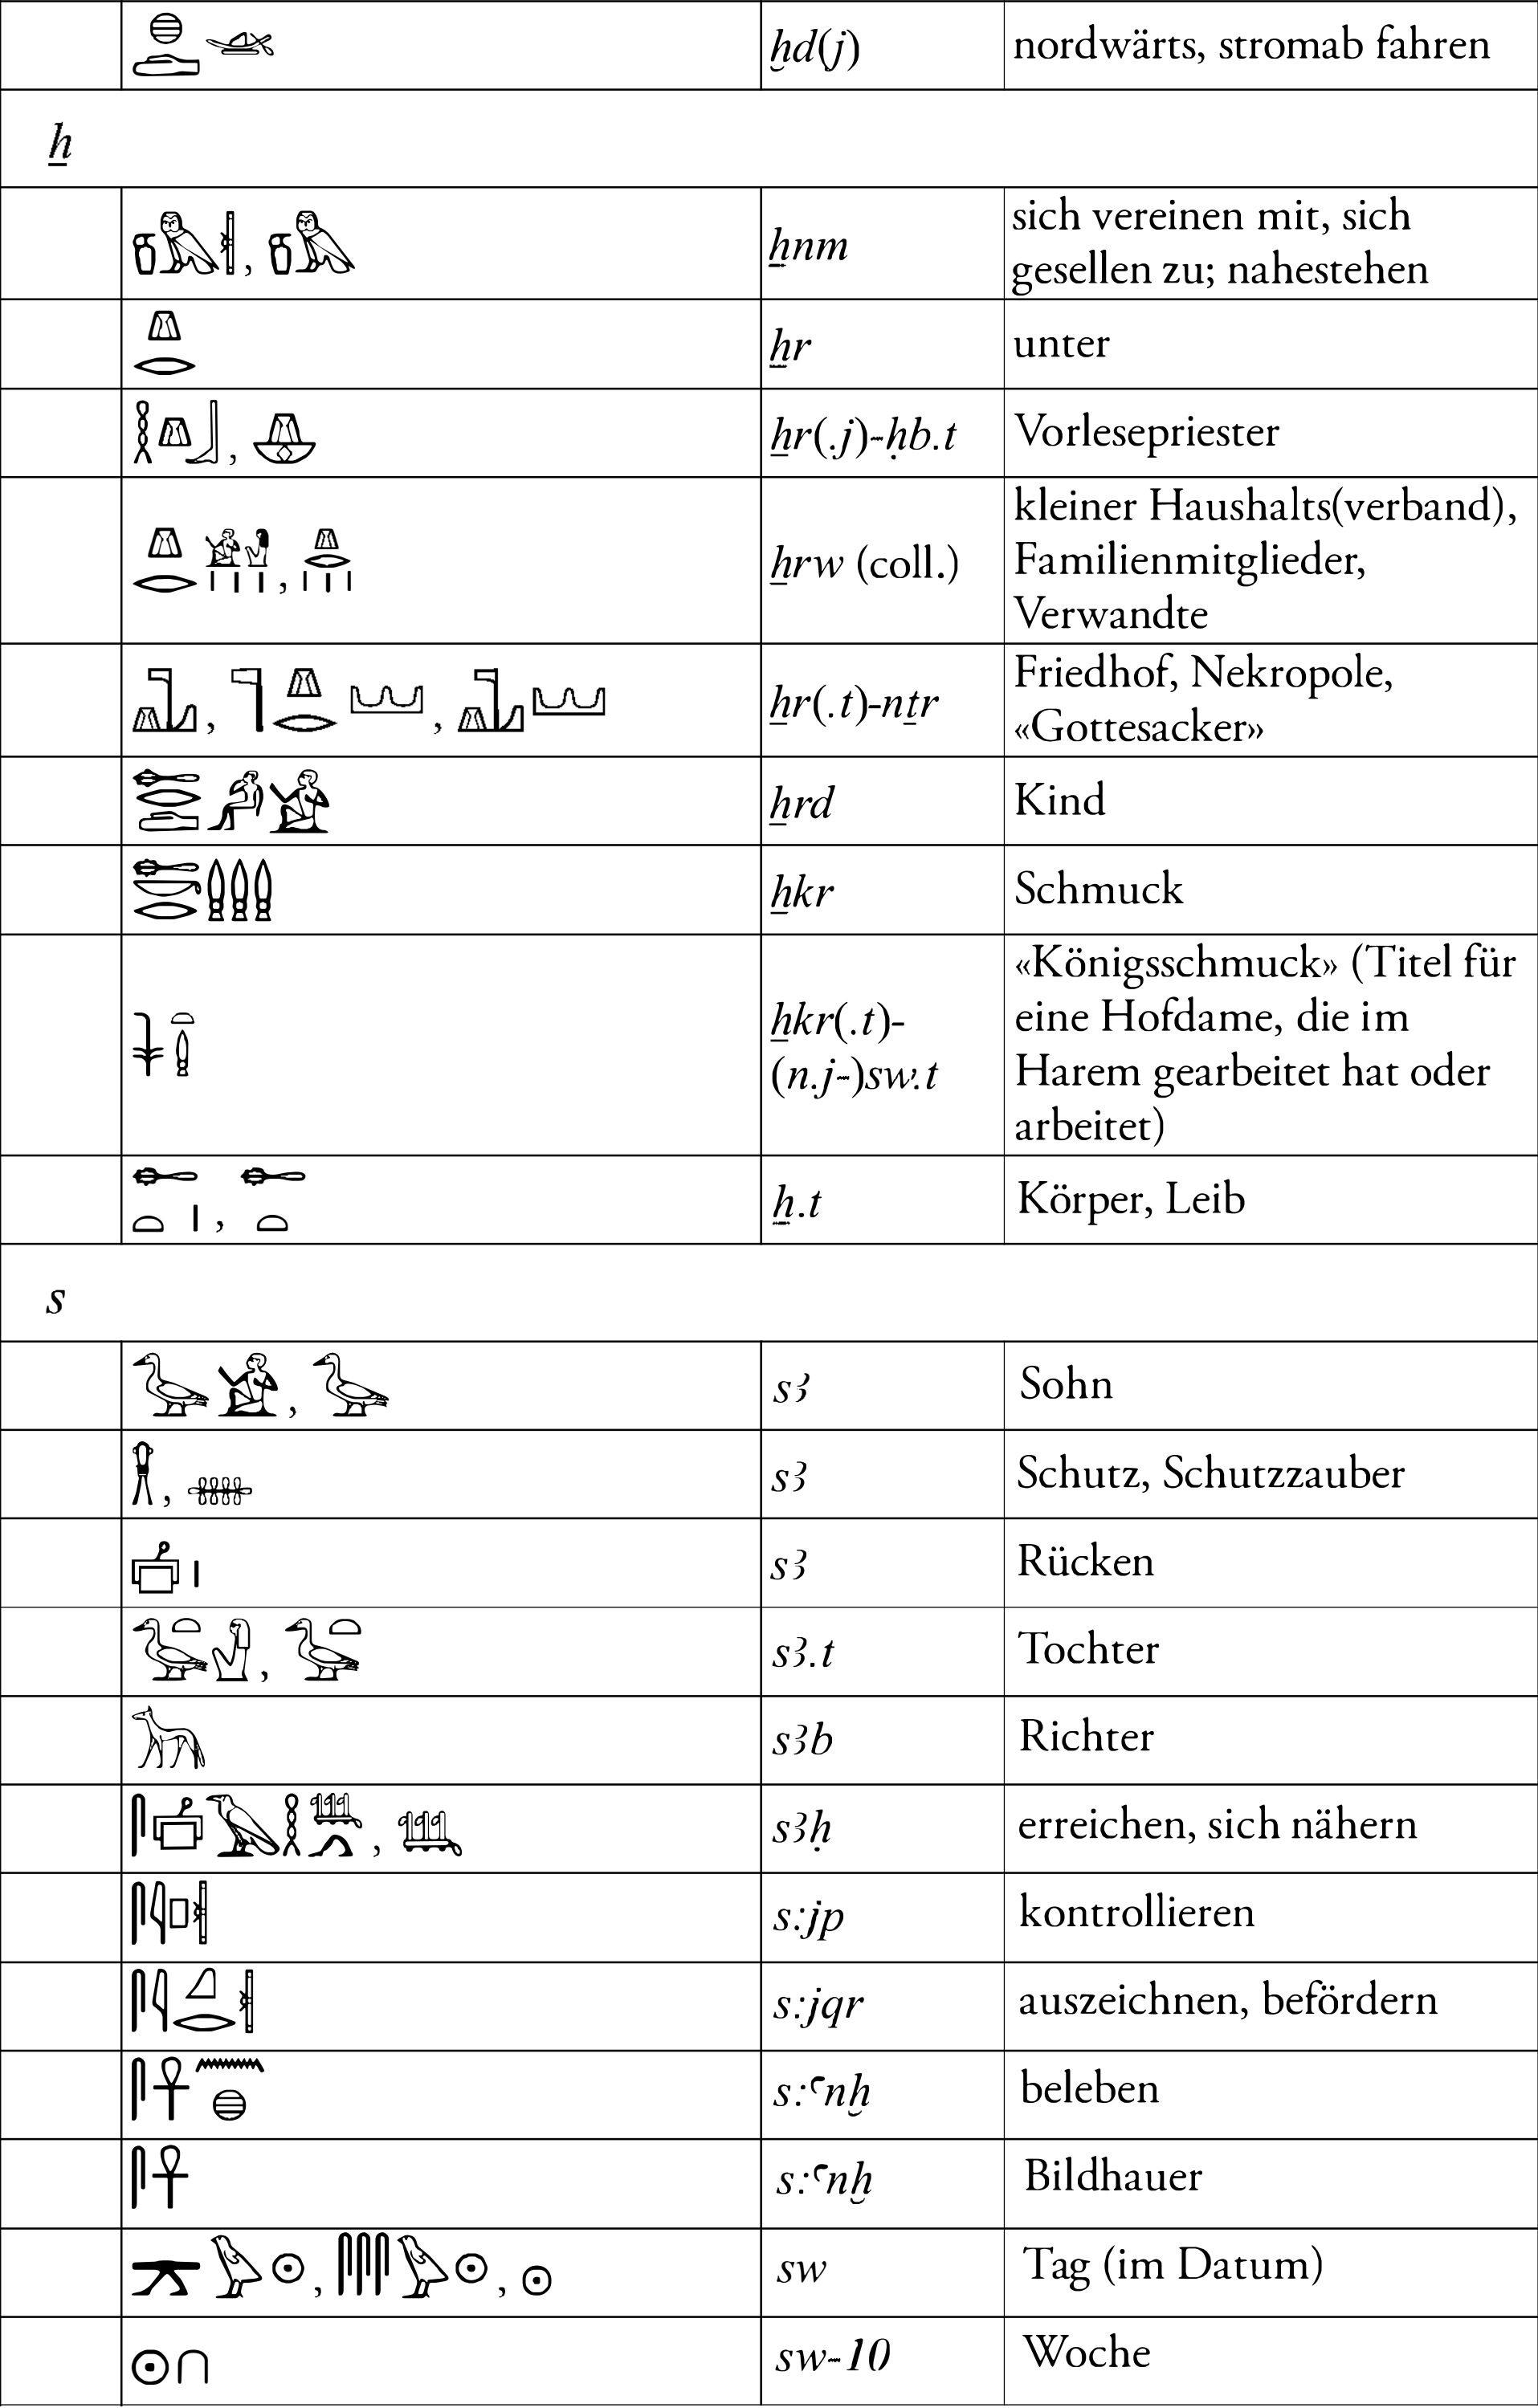 𓐍𓂧𓊛 ḫd(j) nordwärts, stromab fahren
ẖ
𓎸𓅓𓏛, 𓎸𓅓 ẖnm sich vereinen mit, sich
gesellen zu; nahestehen
𓌨𓂋 ẖr unter
𓎛𓌨𓃀, 𓎴 ẖr(.j)-ḥb.t Vorlesepriester
𓌨𓂋𓀀𓁐𓏥, 𓌨𓂋𓏥 ẖrw (coll.) kleiner Haushalts(verband),
Familienmitglieder,
Verwandte
𓊻, 𓊹𓌨𓂋𓈉, 𓊻𓈉 ẖr(.t)-nṯr Friedhof, Nekropole,
«Gottesacker»
𓄡𓂋𓂧𓀔𓀀 ẖrd Kind
𓄡𓎡𓂋𓐬𓐬𓐬 ẖkr Schmuck
𓇓𓏏𓐬 ẖkr(.t)-
(n.j-)sw.t «Königsschmuck» (Titel für
eine Hofdame, die im
Harem gearbeitet hat oder
arbeitet)
𓄡𓏏𓏤, 𓄡𓏏 ẖ.t Körper, Leib
s
𓅭𓀀, 𓅭 sꜣ Sohn
𓎃, 𓎂 sꜣ Schutz, Schutzzauber
𓐟𓏤 sꜣ Rücken
𓅭𓏏𓁐, 𓅭𓏏 sꜣ.t Tochter
𓃥 sꜣb Richter
𓋴𓐟𓄿𓎛𓃃𓂻, 𓃃 sꜣḥ erreichen, sich nähern
𓋴𓇋𓊪𓏛 s:jp kontrollieren
𓋴𓇋𓈎𓂋𓏛 s:jqr auszeichnen, befördern
𓋴𓋹𓈖𓐍 s:ꜥnḫ beleben
𓋴𓋹 s:ꜥnḫ Bildhauer
𓅱𓇳, 𓋴𓋴𓋴𓅱𓇳, 𓇳 sw Tag (im Datum)
𓇳𓎆 sw-10 Woche